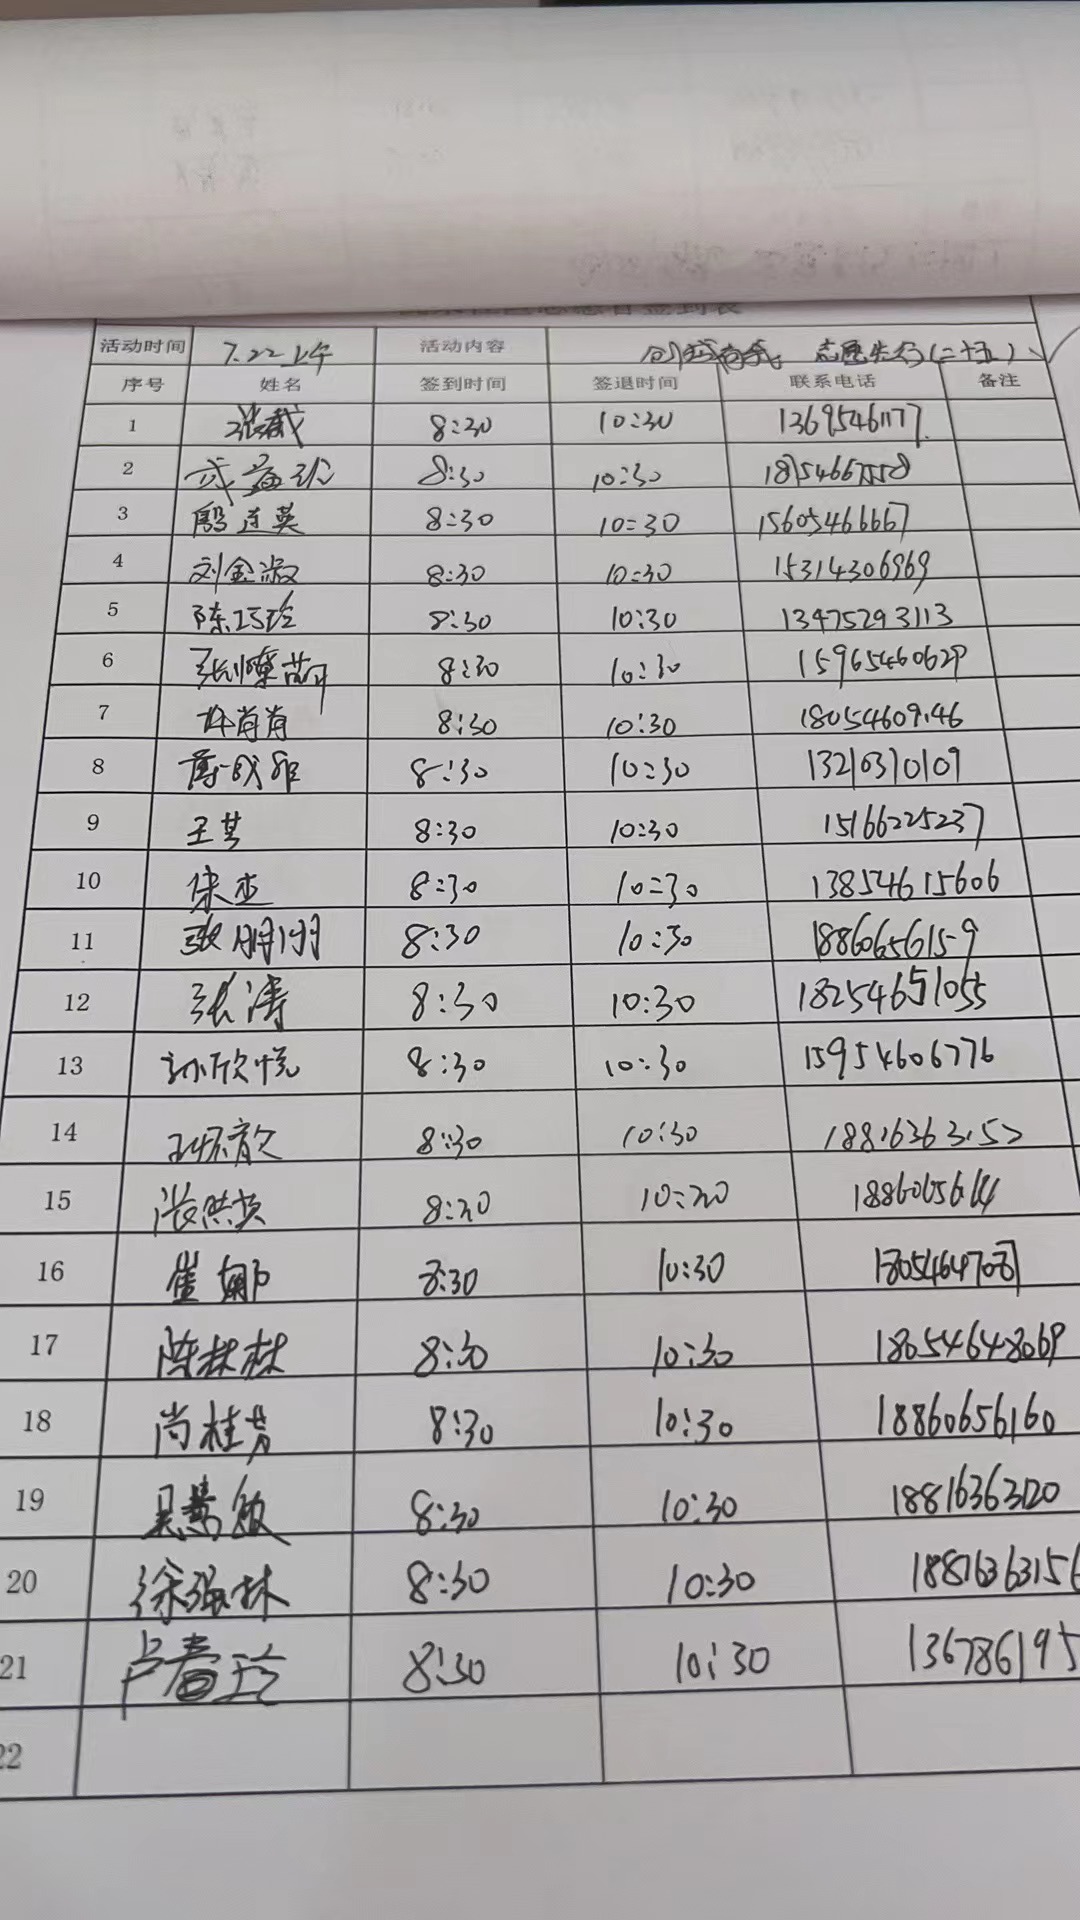 活动时间 7.22上午 活动内容 创城有我，志愿先行(二十五)
序号 姓名 签到时间 签退时间 联系电话 备注
1 张截 8:30 10:30 13695461177
2 8:30 10:30
3 殷连英 8:30 10:30 15605466667
4 刘金淑 8:30 10:30 15314306969
5 陈巧玲 8:30 10:30 13475293113
6 8:30 10:30 15965460629
7 肖肖 8:30 10:30 18054609146
8 8:30 10:30 13210370109
9 王其 8:30 10:30 15166225237
10 8:30 10:30 13854615606
11 张明明 8:30 10:30 18860656159
12 张涛 8:30 10:30 18254651055
13 孙欣悦 8:30 10:30 15954606776
14 8:30 10:30
15 张洪英 8:30 10:30
16 崔娜 8:30 10:30
17 陈林林 8:30 10:30 18054648069
18 尚桂芳 8:30 10:30 18860656160
19 吴慧敏 8:30 10:30 18816363120
20 徐强林 8:30 10:30 18816363156
21 卢春玲 8:30 10:30 136786195
22